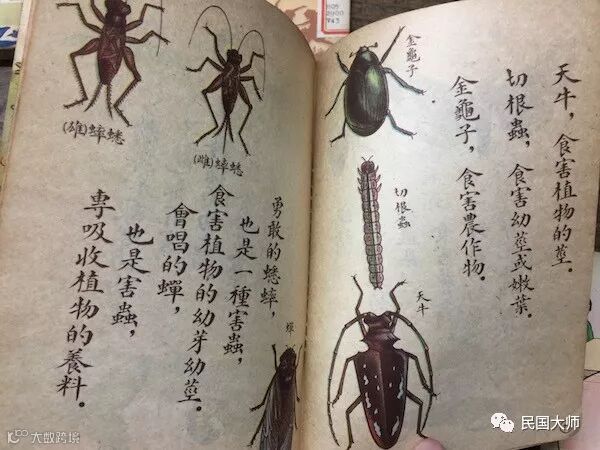 天牛，食害植物的莖。
切根蟲，食害幼莖或嫩葉。
金龜子，食害農作物。
金龜子
切根蟲
天牛
勇敢的蟋蟀，
也是一種害蟲，
食害植物的幼芽幼莖。
會唱的蟬，
也是害蟲，
專吸收植物的養料。
蟋蟀(雌)
蟋蟀(雄)
蟬
民国大师
大数跨境